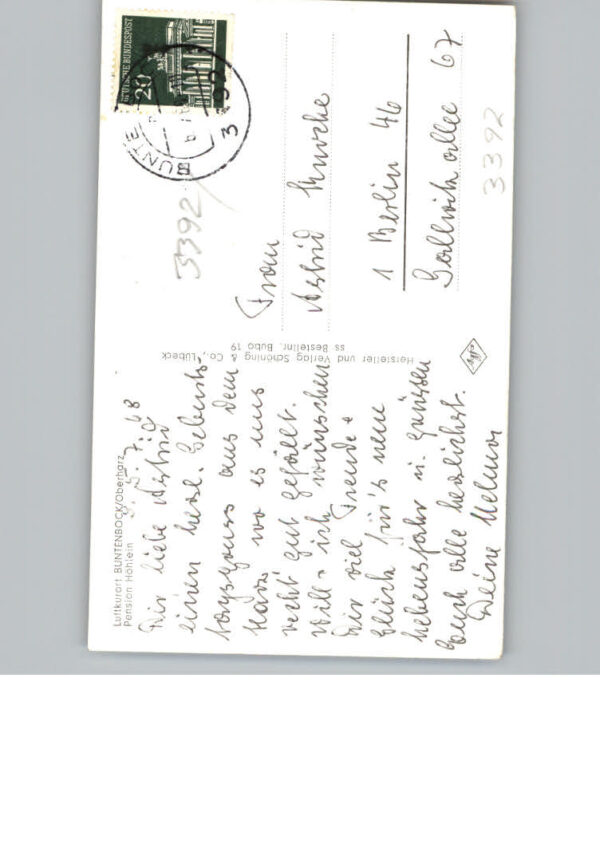 Luftkurort BUNTENBOCK/Oberharz
Pension Höhlein
5. 7. 68
Dir liebe Astrid
einen herzl. Geburts-
tagsgruss aus dem
Harz wo es uns
recht gut gefällt.
Will u. ich wünschen
Dir viel Freude +
Glück für's neue
Lebensjahr u. grüssen
Euch alle herzlichst.
Deine
Hersteller und Verlag Schöning & Co., Lübeck
ss Bestellnr. Bubo 19
Agfa
DEUTSCHE BUNDESPOST
20
3392
BUNTE
3392
Frau
Astrid
1 Berlin 46
Gallwitzallee 67
3392